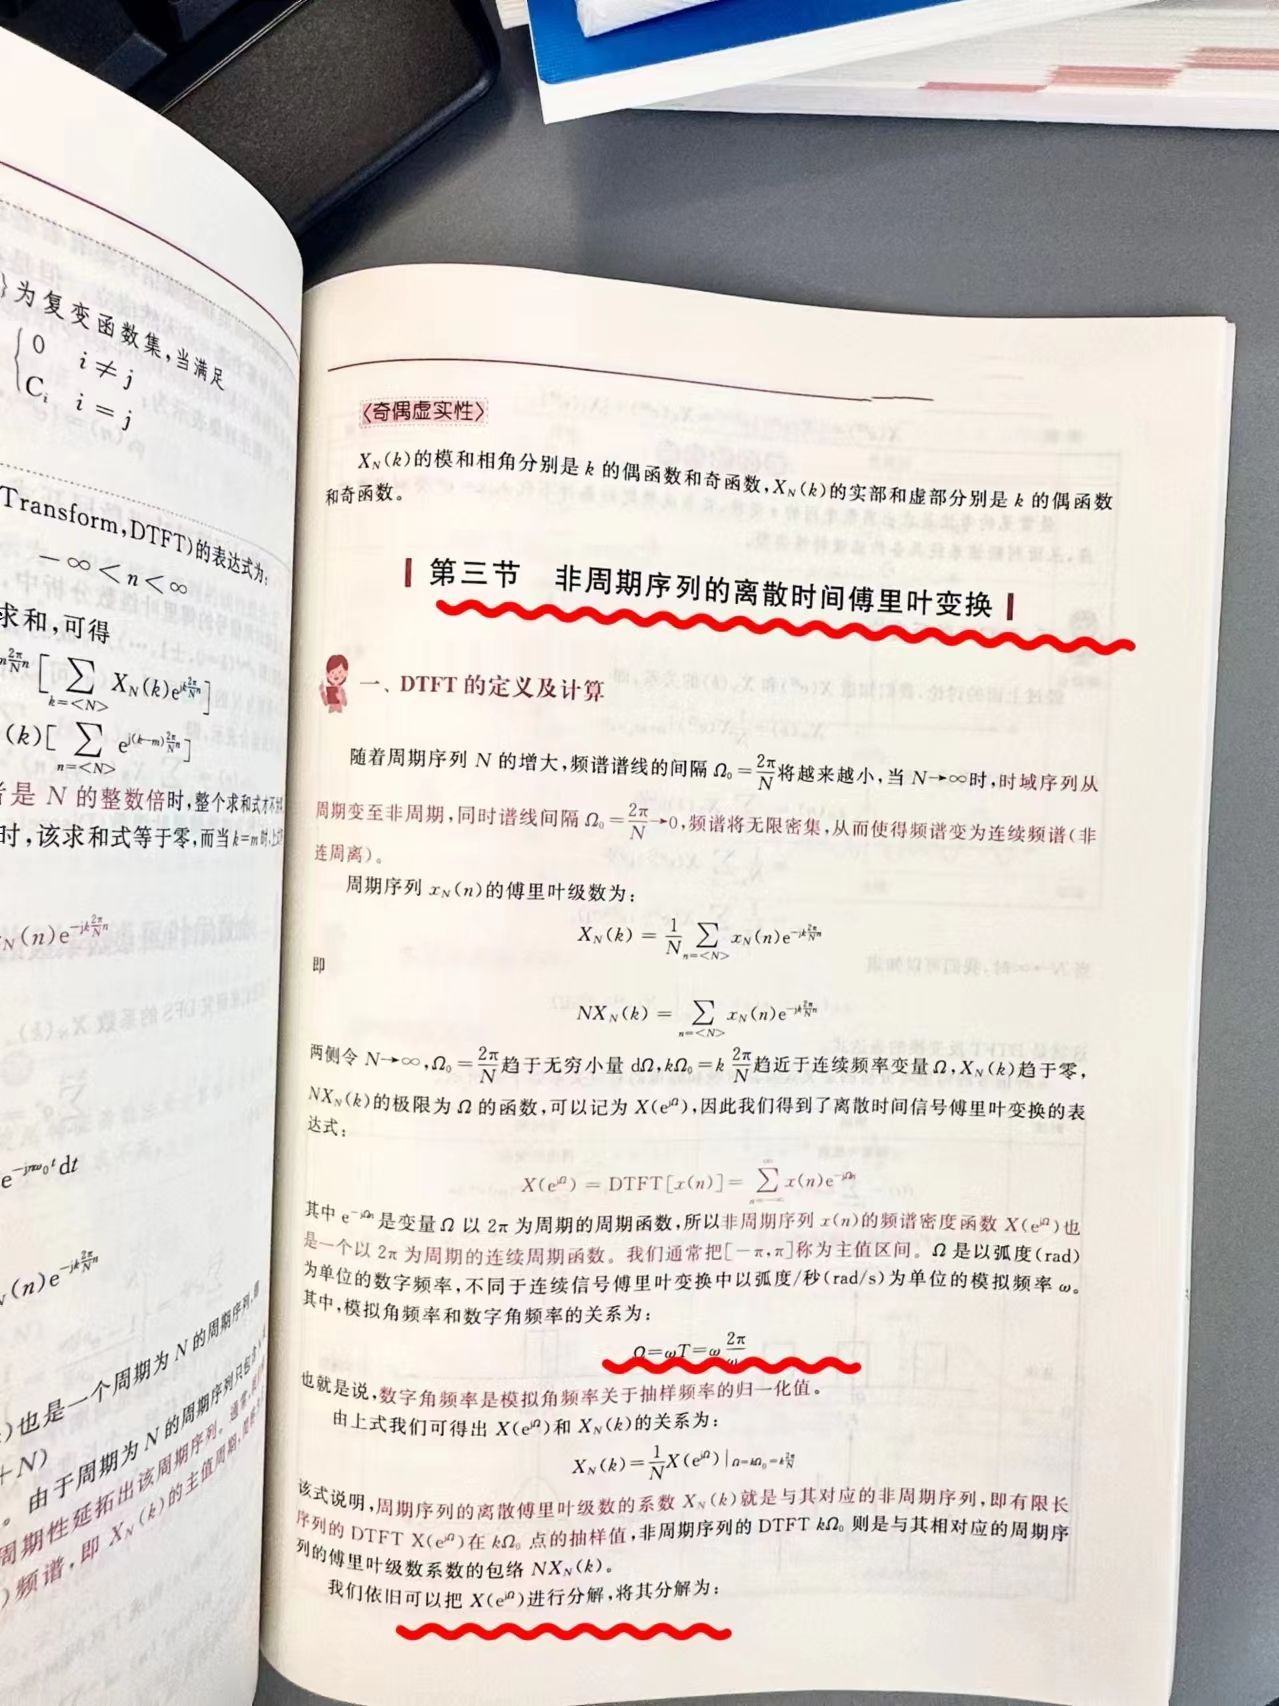 为复变函数集,当满足
0 i≠j
Cᵢ i=j
Transform,DTFT)的表达式为:
−∞<n<∞
求和,可得
[∑ X_N(k)e^{jk\frac{2π}{N}n}]
k=<N>
(k)[∑ e^{j(k−m)\frac{2π}{N}n}]
n=<N>
是 N 的整数倍时,整个求和式才不
时,该求和式等于零,而当 k=m 时,
(n)e^{−jk\frac{2π}{N}n}
dt
(n)e^{−jk\frac{2π}{N}n}
)也是一个周期为 N 的周期序列,
+N)
。由于周期为 N 的周期序列只包含
周期性延拓出该周期序列。通常,
)频谱,即 X_N(k)的主值周期,
〈奇偶虚实性〉
X_N(k)的模和相角分别是 k 的偶函数和奇函数,X_N(k)的实部和虚部分别是 k 的偶函数
和奇函数。
第三节 非周期序列的离散时间傅里叶变换
一、DTFT 的定义及计算
随着周期序列 N 的增大,频谱谱线的间隔 Ω₀=\frac{2π}{N}将越来越小,当 N→∞时,时域序列从
周期变至非周期,同时谱线间隔 Ω₀=\frac{2π}{N}→0,频谱将无限密集,从而使得频谱变为连续频谱(非
连周离)。
周期序列 x_N(n)的傅里叶级数为:
X_N(k) = \frac{1}{N} ∑_{n=<N>} x_N(n)e^{−jk\frac{2π}{N}n}
即
NX_N(k) = ∑_{n=<N>} x_N(n)e^{−jk\frac{2π}{N}n}
两侧令 N→∞,Ω₀=\frac{2π}{N}趋于无穷小量 dΩ,kΩ₀=k\frac{2π}{N}趋近于连续频率变量 Ω,X_N(k)趋于零,
NX_N(k)的极限为 Ω 的函数,可以记为 X(e^{jΩ}),因此我们得到了离散时间信号傅里叶变换的表
达式:
X(e^{jΩ}) = DTFT[x(n)] = ∑_{n=−∞}^{∞} x(n)e^{−jΩn}
其中 e^{−jΩn}是变量 Ω 以 2π 为周期的周期函数,所以非周期序列 x(n)的频谱密度函数 X(e^{jΩ})也
是一个以 2π 为周期的连续周期函数。我们通常把[−π,π]称为主值区间。Ω 是以弧度(rad)
为单位的数字频率,不同于连续信号傅里叶变换中以弧度/秒(rad/s)为单位的模拟频率 ω。
其中,模拟角频率和数字角频率的关系为:
Ω=ωT=ω\frac{2π}{ω}
也就是说,数字角频率是模拟角频率关于抽样频率的归一化值。
由上式我们可得出 X(e^{jΩ})和 X_N(k)的关系为:
X_N(k)=\frac{1}{N}X(e^{jΩ})|_{Ω=kΩ₀=k\frac{2π}{N}}
该式说明,周期序列的离散傅里叶级数的系数 X_N(k)就是与其对应的非周期序列,即有限长
序列的 DTFT X(e^{jΩ})在 kΩ₀ 点的抽样值,非周期序列的 DTFT kΩ₀ 则是与其相对应的周期序
列的傅里叶级数系数的包络 NX_N(k)。
我们依旧可以把 X(e^{jΩ})进行分解,将其分解为: